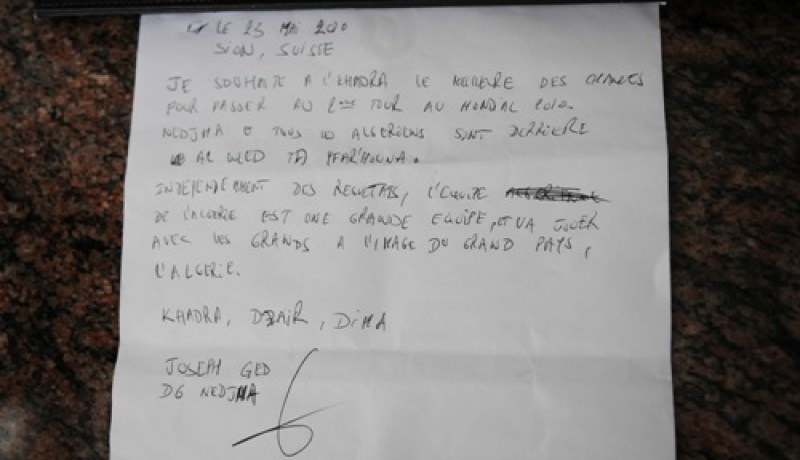 LE 23 MAI 2010
SION, SUISSE
JE SOUHAITE A L'KHADRA LE MEILLEURE DES CHANCES
POUR PASSER AU 2ème TOUR AU MONDIAL 2010.
NEDJMA E TOUS ALGERIENS SONT DERRIERE
AL WLED TA YFAR'HOUNA.
INDEPENDEMENT DES RESULTATS, L'EQUIPE
DE L'ALGERIE EST UNE GRANDE EQUIPE, ET VA JOUER
AVEC LES GRANDS A L'IMAGE DU GRAND PAYS,
L'ALGERIE.
KHADRA, DZAIR, DIMA
JOSEPH GED
DG NEDJMA